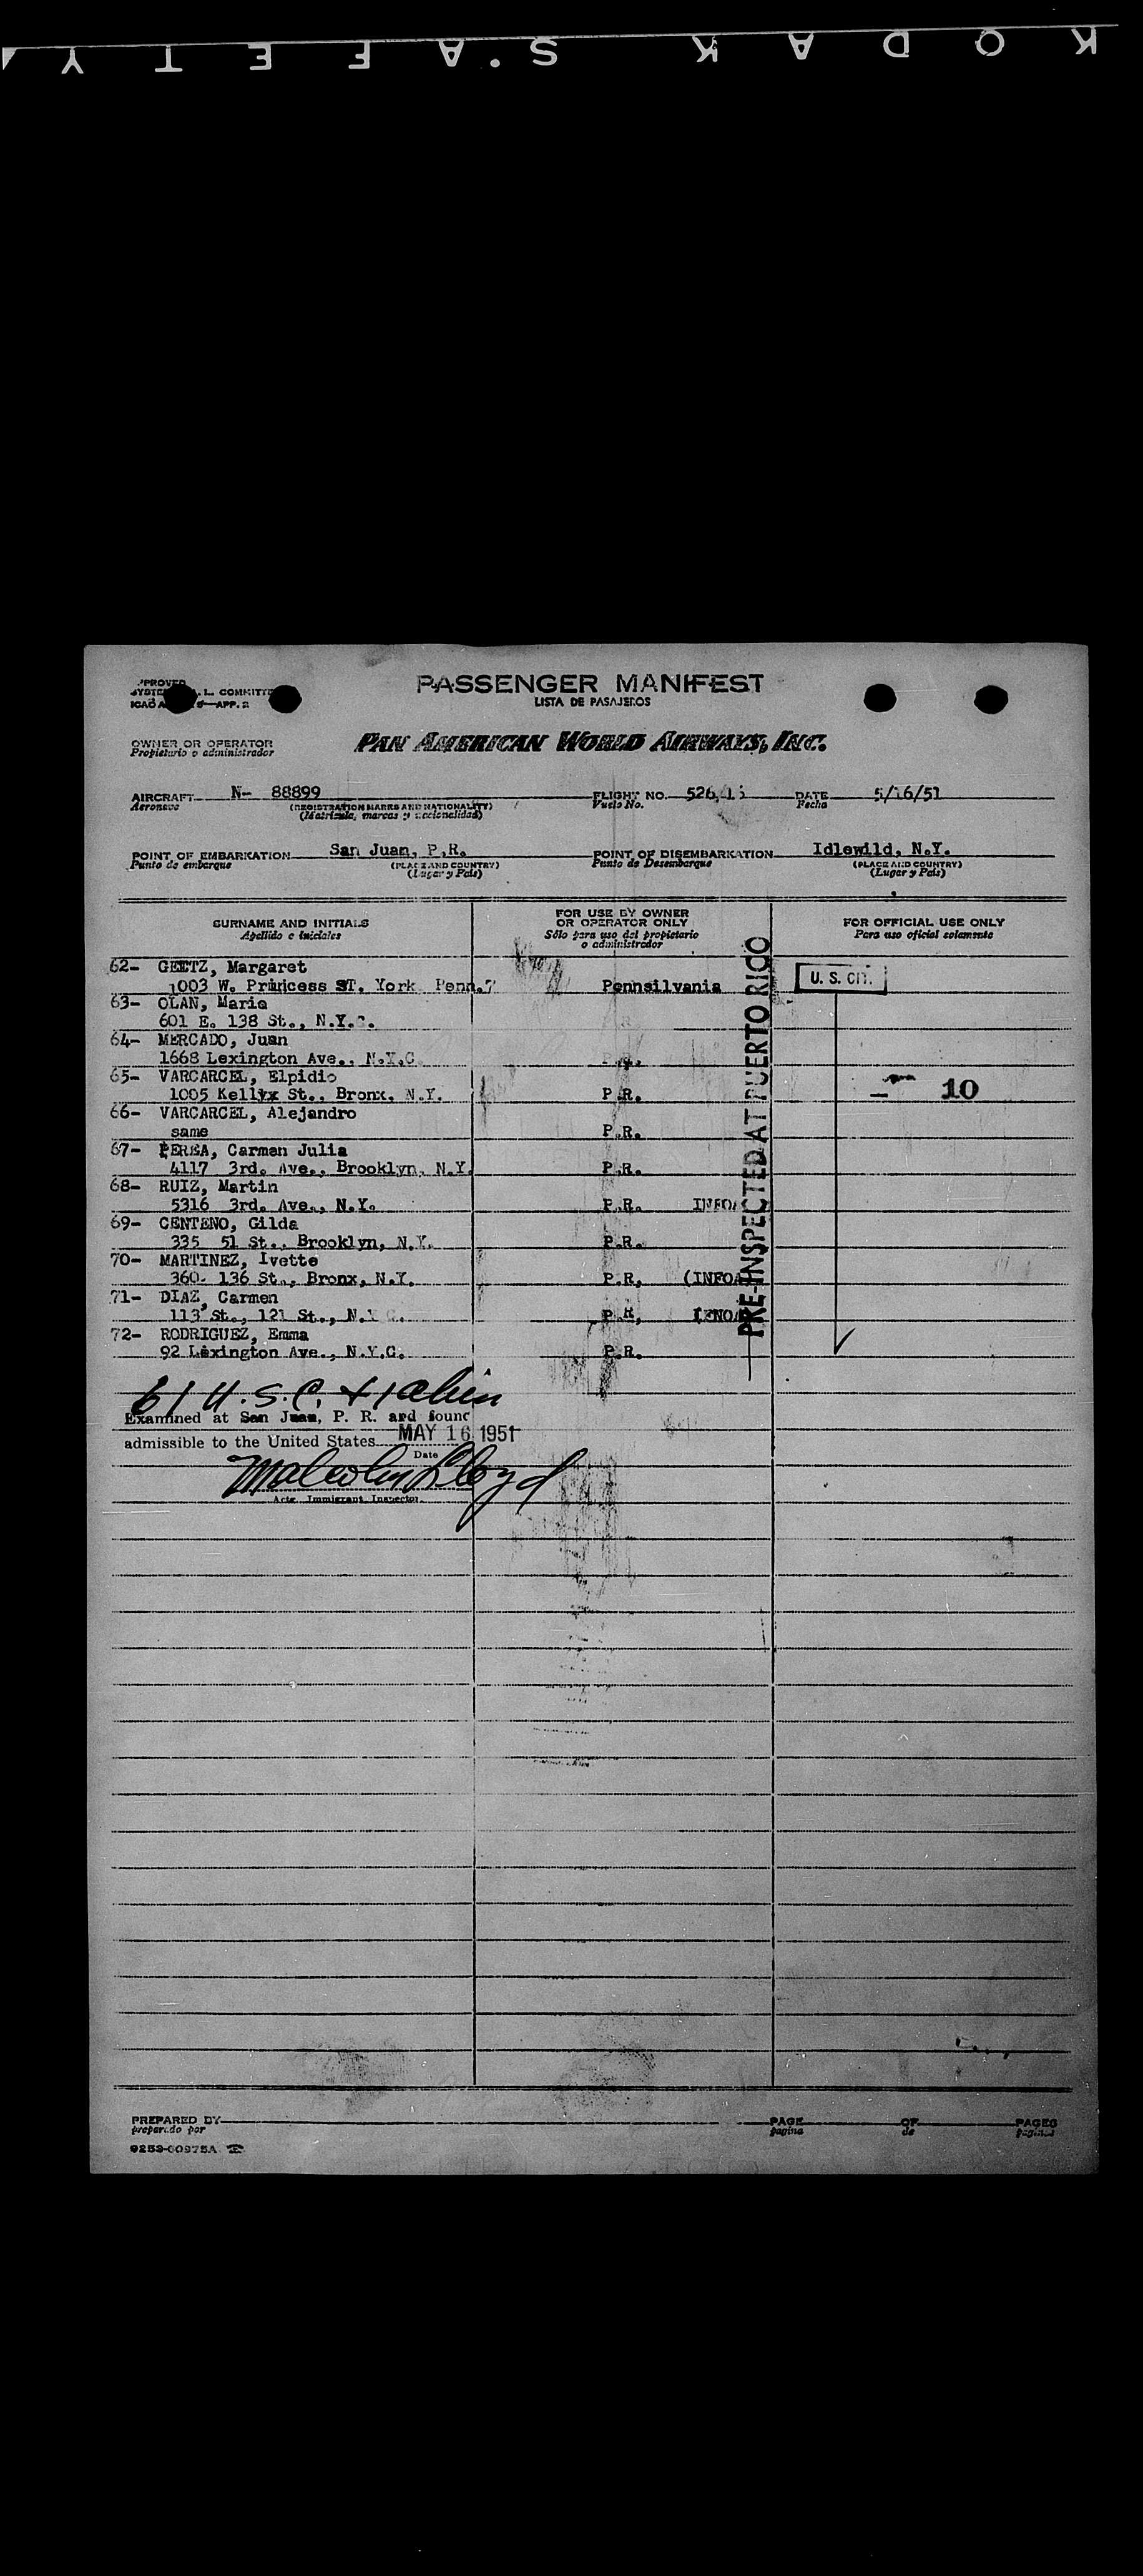 KODAK SAFETY
PASSENGER MANIFEST
LISTA DE PASAJEROS
ICAO
OWNER OR OPERATOR
Propietario o administrador
PAN AMERICAN WORLD AIRWAYS, INC.
AIRCRAFT N- 88899 FLIGHT NO. 526 DATE 5/16/51
Aeronave (REGISTRATION MARKS AND NATIONALITY) Vuelo No. Fecha
(Matrícula, marcas y nacionalidad)
POINT OF EMBARKATION San Juan, P.R. POINT OF DISEMBARKATION Idlewild, N.Y.
Punto de embarque (PLACE AND COUNTRY) Punto de Desembarque (PLACE AND COUNTRY)
(Lugar y País) (Lugar y País)
SURNAME AND INITIALS FOR USE BY OWNER OR OPERATOR ONLY FOR OFFICIAL USE ONLY
Apellido e iniciales Sólo para uso del propietario o administrador Para uso oficial solamente
62- GEETZ, Margaret
1003 W. Princess ST. York Penn. Pennsilvania U. S. CIT.
63- OLAN, Maria
601 E. 138 St., N.Y.
64- MERCADO, Juan
1668 Lexington Ave., N.Y.C
65- VARCARCEL, Elpidio
1005 Kellyx St., Bronx, N.Y. P.R. — 10
66- VARCARCEL, Alejandro
same P.R.
67- PEREA, Carmen Julia
4117 3rd. Ave., Brooklyn, N.Y. P.R.
68- RUIZ, Martin
5316 3rd. Ave., N.Y. P.R.
69- CENTENO, Gilda
335 51 St., Brooklyn, N.Y. P.R.
70- MARTINEZ, Ivette
360- 136 St., Bronx, N.Y. P.R,
71- DIAZ, Carmen
113 St., 121 St., P.R,
72- RODRIGUEZ, Emma
92 Lexington Ave., N.Y.C. P.R.
PRE-INSPECTED AT PUERTO RICO
61 U.S.C. + 1 alien
Examined at San Juan, P. R. and found
admissible to the United States MAY 16 1951
Date
Malcolm Lloyd
Actg. Immigrant Inspector.
PREPARED BY PAGE OF PAGES
preparado por pagina de paginas